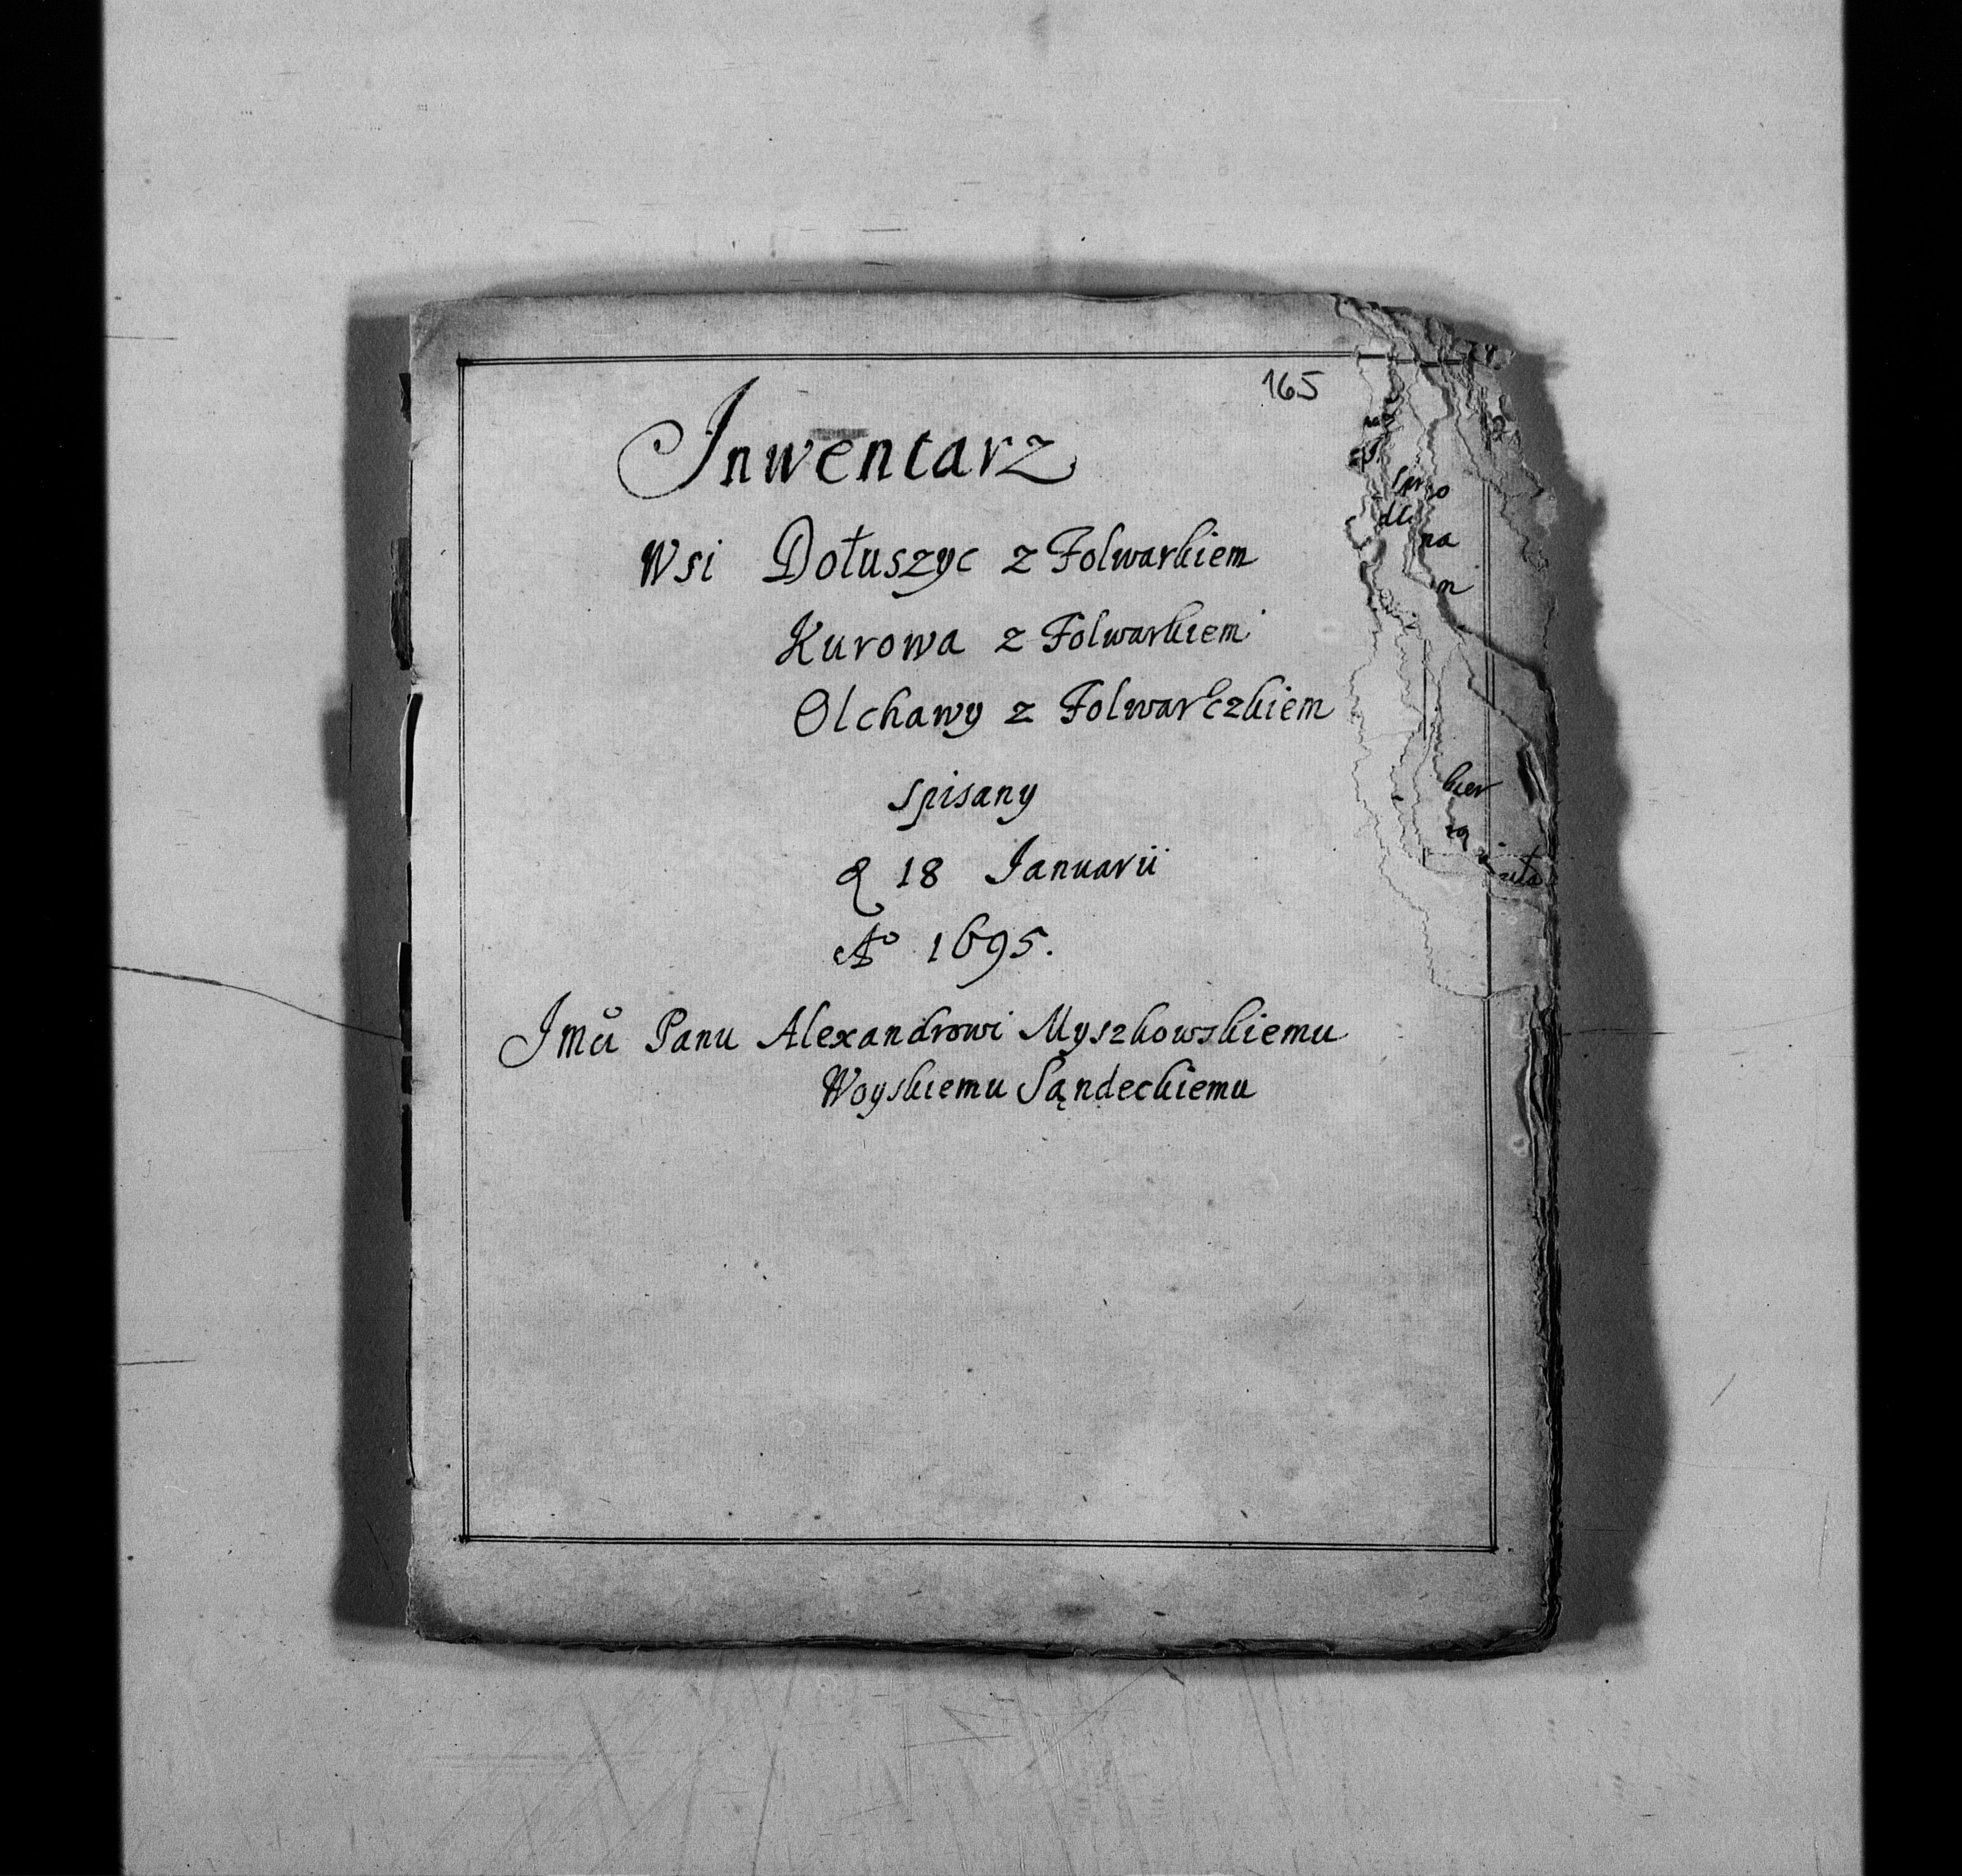 165
Inwentarz
Wsi Dołuszyc z Folwarkiem
Kurowa z Folwarkiem
Olchawy z Folwarczkiem
spisany
18 Januarii
Aº 1695.
Panu Alexandrowi Myszkowskiemu
Woyskiemu Sąndeckiemu
na